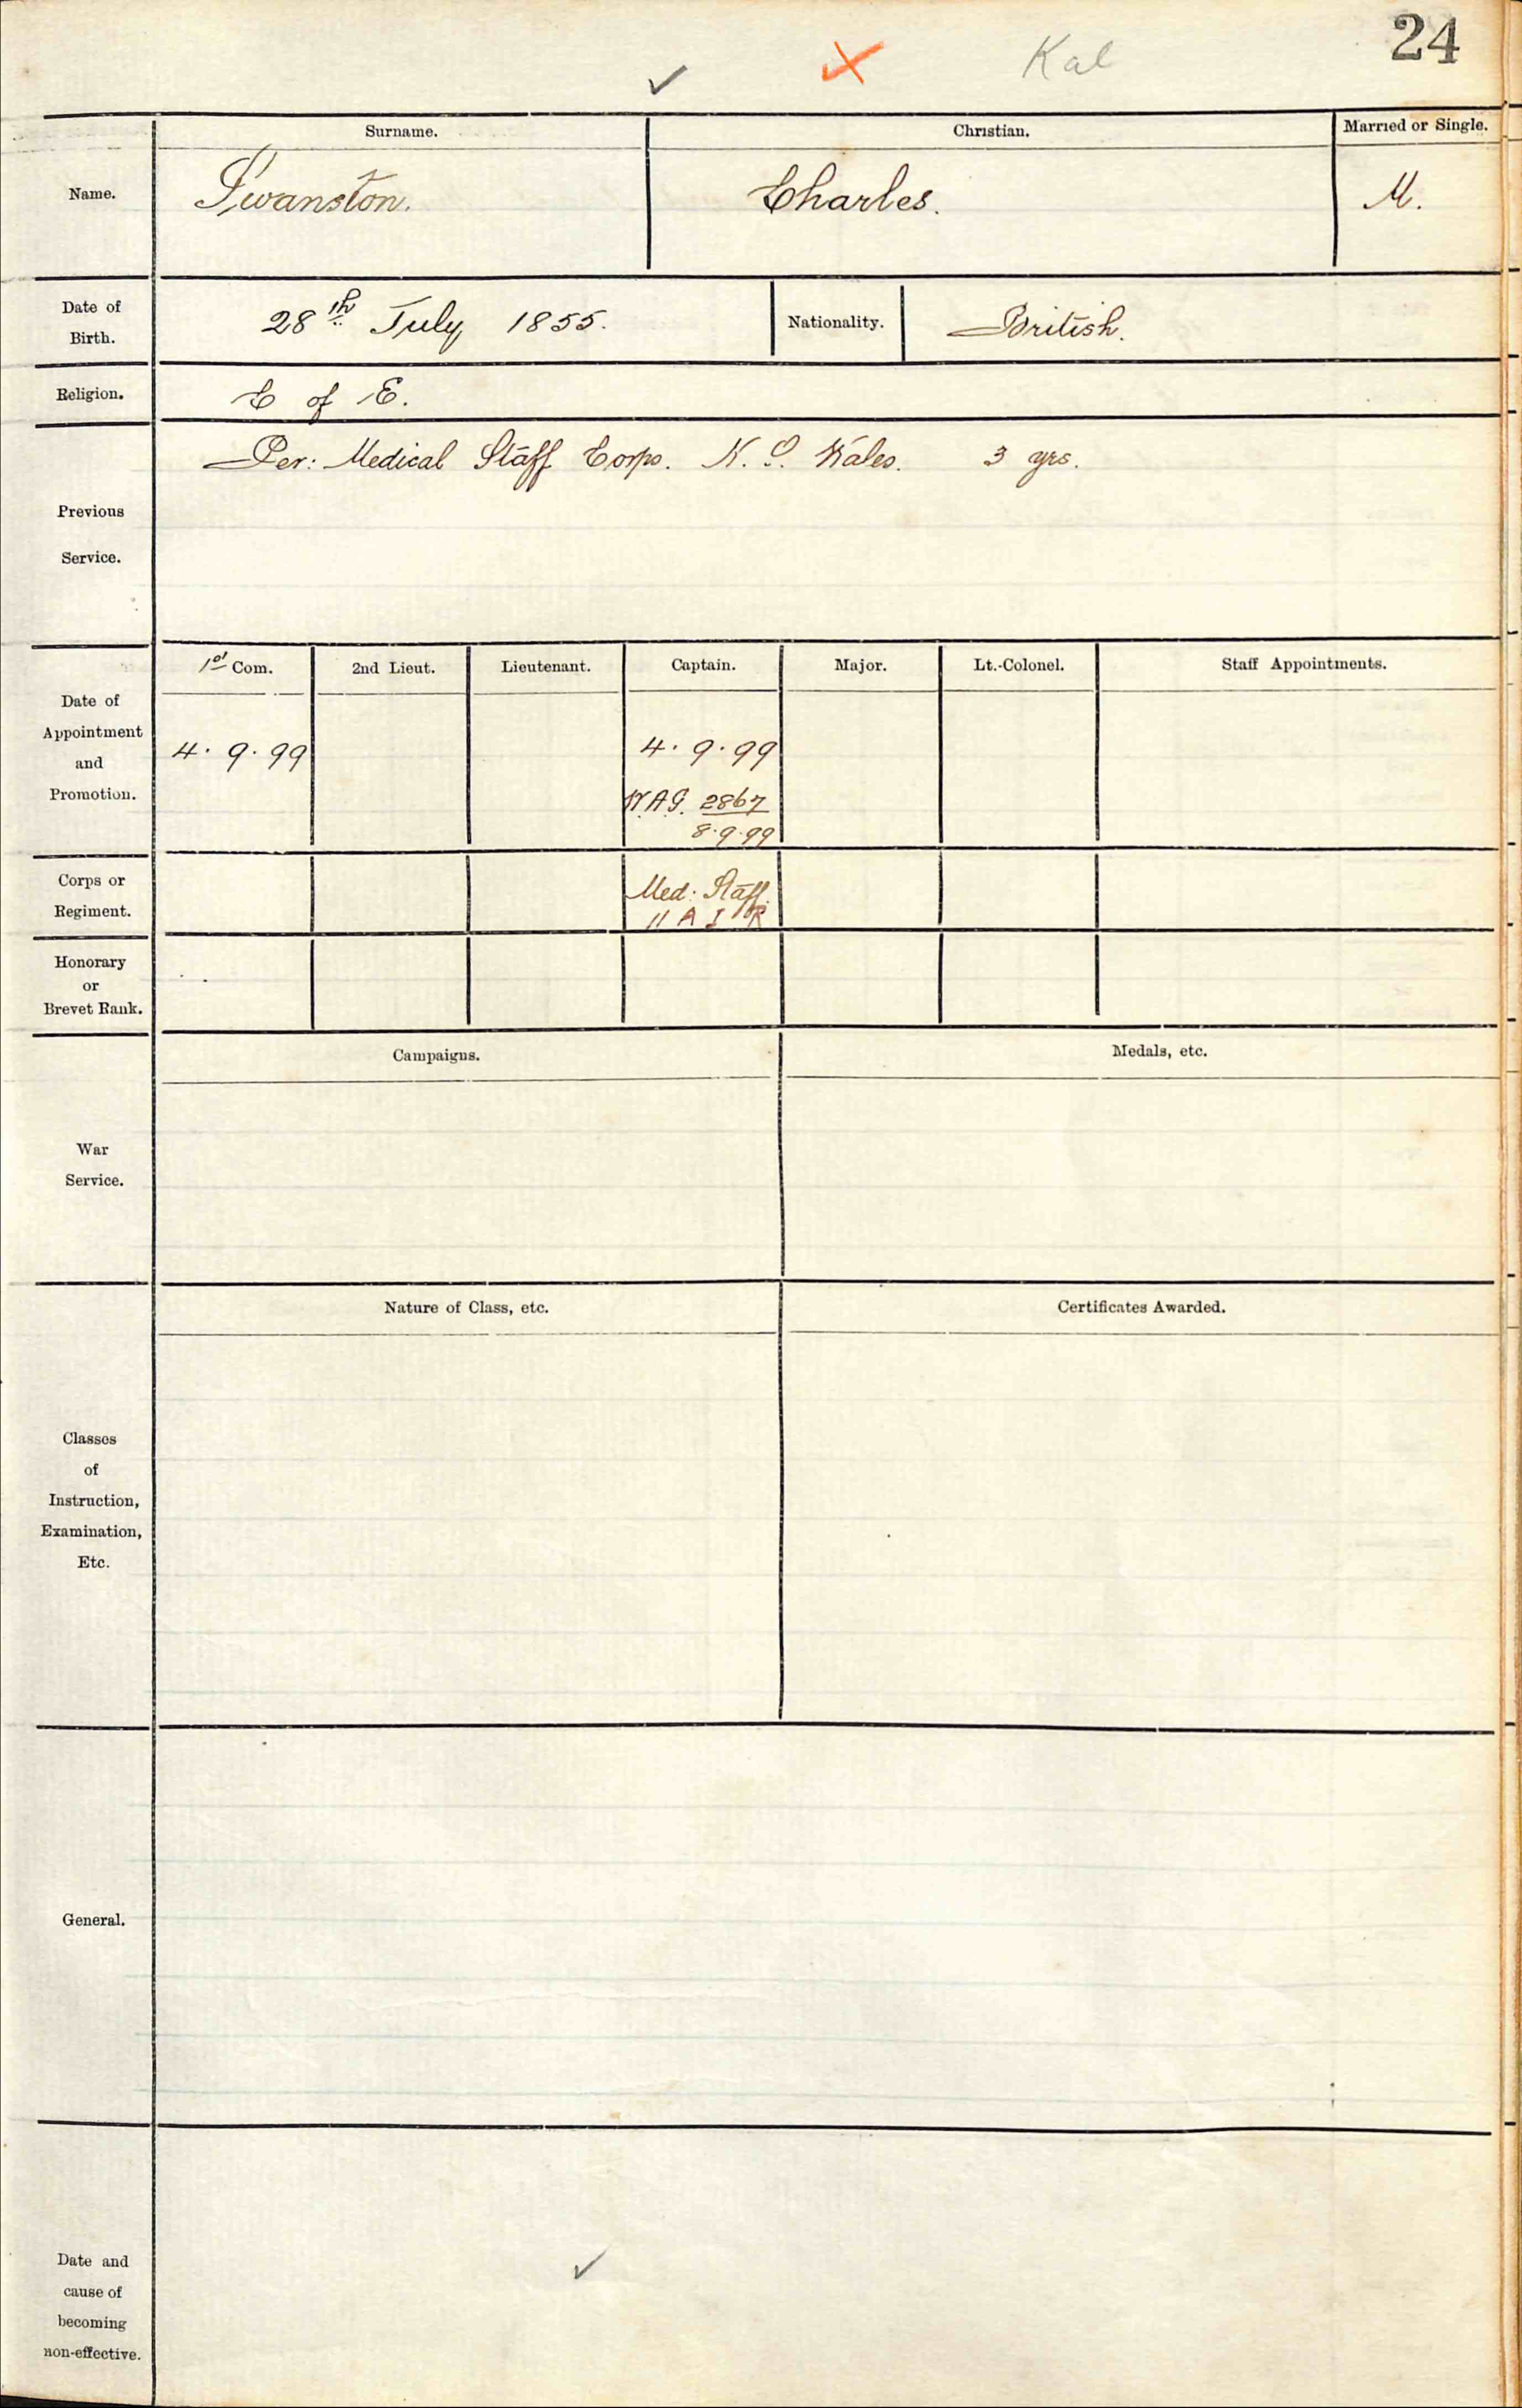 24
Kal
Surname. Christian. Married or Single.
Name. Swanston. Charles. M.
Date of Birth. 28th July 1855. Nationality. British.
Religion. C of E.
Per: Medical Staff Corps. N. S. Wales. 3 yrs.
Previous
Service.
1st Com. 2nd Lieut. Lieutenant. Captain. Major. Lt.-Colonel. Staff Appointments.
Date of
Appointment
and
Promotion.
4.9.99 4.9.99
W.A.G. 2867
8.9.99
Corps or
Regiment.
Med: Staff.
11 A I R
Honorary
or
Brevet Rank.
Campaigns. Medals, etc.
War
Service.
Nature of Class, etc. Certificates Awarded.
Classes
of
Instruction,
Examination,
Etc.
General.
Date and
cause of
becoming
non-effective.